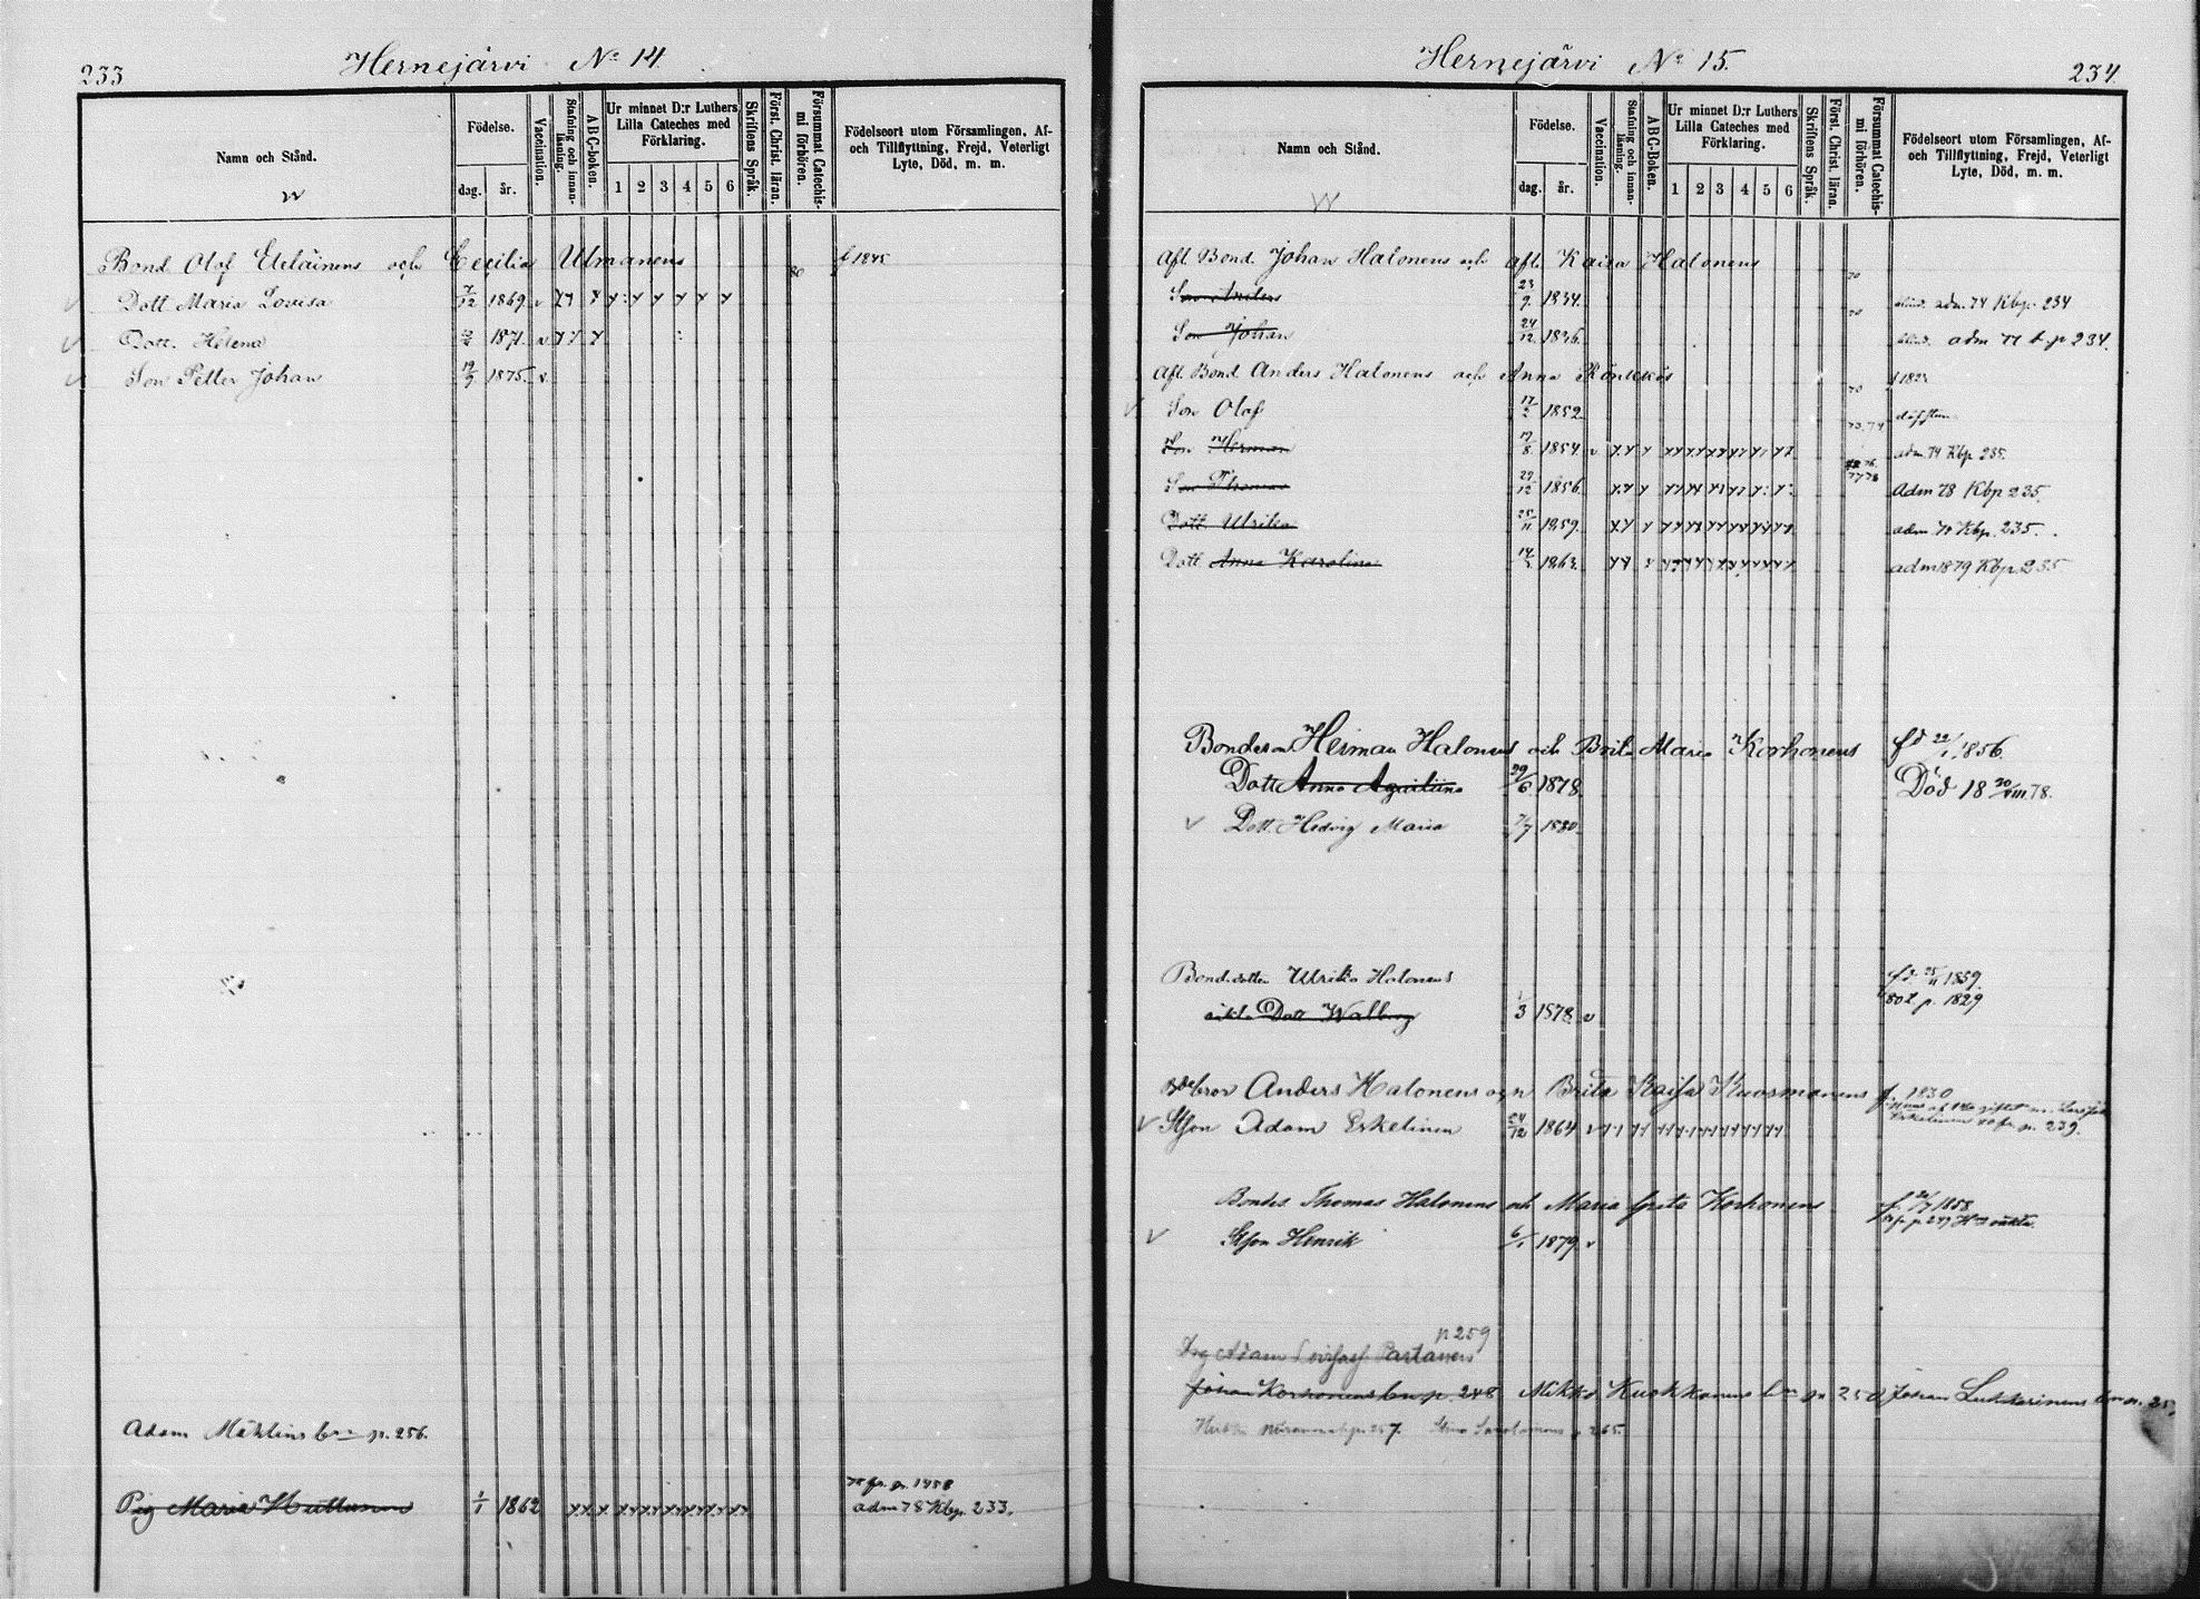 233
Hernejärvi No 14.
Namn och Stånd.
Födelse.
dag. år.
Vaccination.
Stafning och innan-läsning.
ABC-boken.
Ur minnet D:r Luthers Lilla Cateches med Förklaring.
1 2 3 4 5 6
Skriftens Språk.
Först. Christ. läran.
Försummat Catechis-mi förhören.
Födelseort utom Församlingen, Af- och Tillflyttning, Frejd, Veterligt Lyte, Död, m. m.
Bond. Olof Eteläinens och Cecilia Ulmanens 80 f 1845
Dott Maria Lovisa 7/12 1869 v
Dott. Helena 1871 v
Son Petter Johan 19/9 1875 v
Adam p. 256.
Pig Maria Huttunen 1/1 1862
p. 1458
adm 78 Kbp. 233.
Hernejärvi No 15.
234.
Namn och Stånd.
Födelse.
dag. år.
Vaccination.
Stafning och innan-läsning.
ABC-Boken.
Ur minnet D:r Luthers Lilla Cateches med Förklaring.
1 2 3 4 5 6
Skriftens Språk.
Först. Christ. läran.
Försummat Catechis-mi förhören.
Födelseort utom Församlingen, Af- och Tillflyttning, Frejd, Veterligt Lyte, Död, m. m.
Afl Bond Johan Halonens och afl. Kaisa Halonens
Son Anders 23/9 1834. adm. 74 Kbp. 234
Son Johan 24/12 1836. adm 77 k.p 234.
Afl. Bond Anders Halonens och Anna
Son Olof 17/2 1852 döfstum
Son Herman 19/8 1854 v adm. 74 Kbp 235.
Son Thomas 29/12 1856 Adm 78 Kbp 235.
Dott Ulrika 25/11 1859. adm. Kbp. 235.
Dott Anna Karolina 1863. adm 1879 Kbp 235
Bondeson Herman Halonens och Brita Maria Korhonens fd 22/1 1856.
Dott Anna 29/6 1878 Död 18 20/VIII 78.
Dott. Hedvig Maria 1880
Bond. dotter Ulrika Halonens fd 25/11 1859.
80 p. 1829
Dott Walborg 3 1878 v
bror Anders Halonens och Brita Kaisa Kuosmanens f. 1830
p. 239.
Son Adam Eskelinen 24/12 1864 v
Bondes. Thomas Halonens och Maria Greta Korhonens 1858
Son Henrik 6/1 1879 v
p 259
Drg Adam Partanens
Johan Korhonens p. 248 Mikko p. 250 Johan
p. 257. 265.